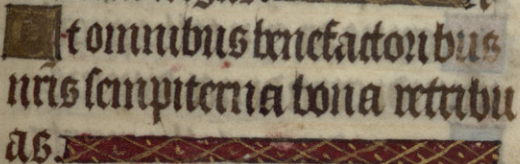 Et omnibus benefactoribus
nris sempiterna bona retribu
as.